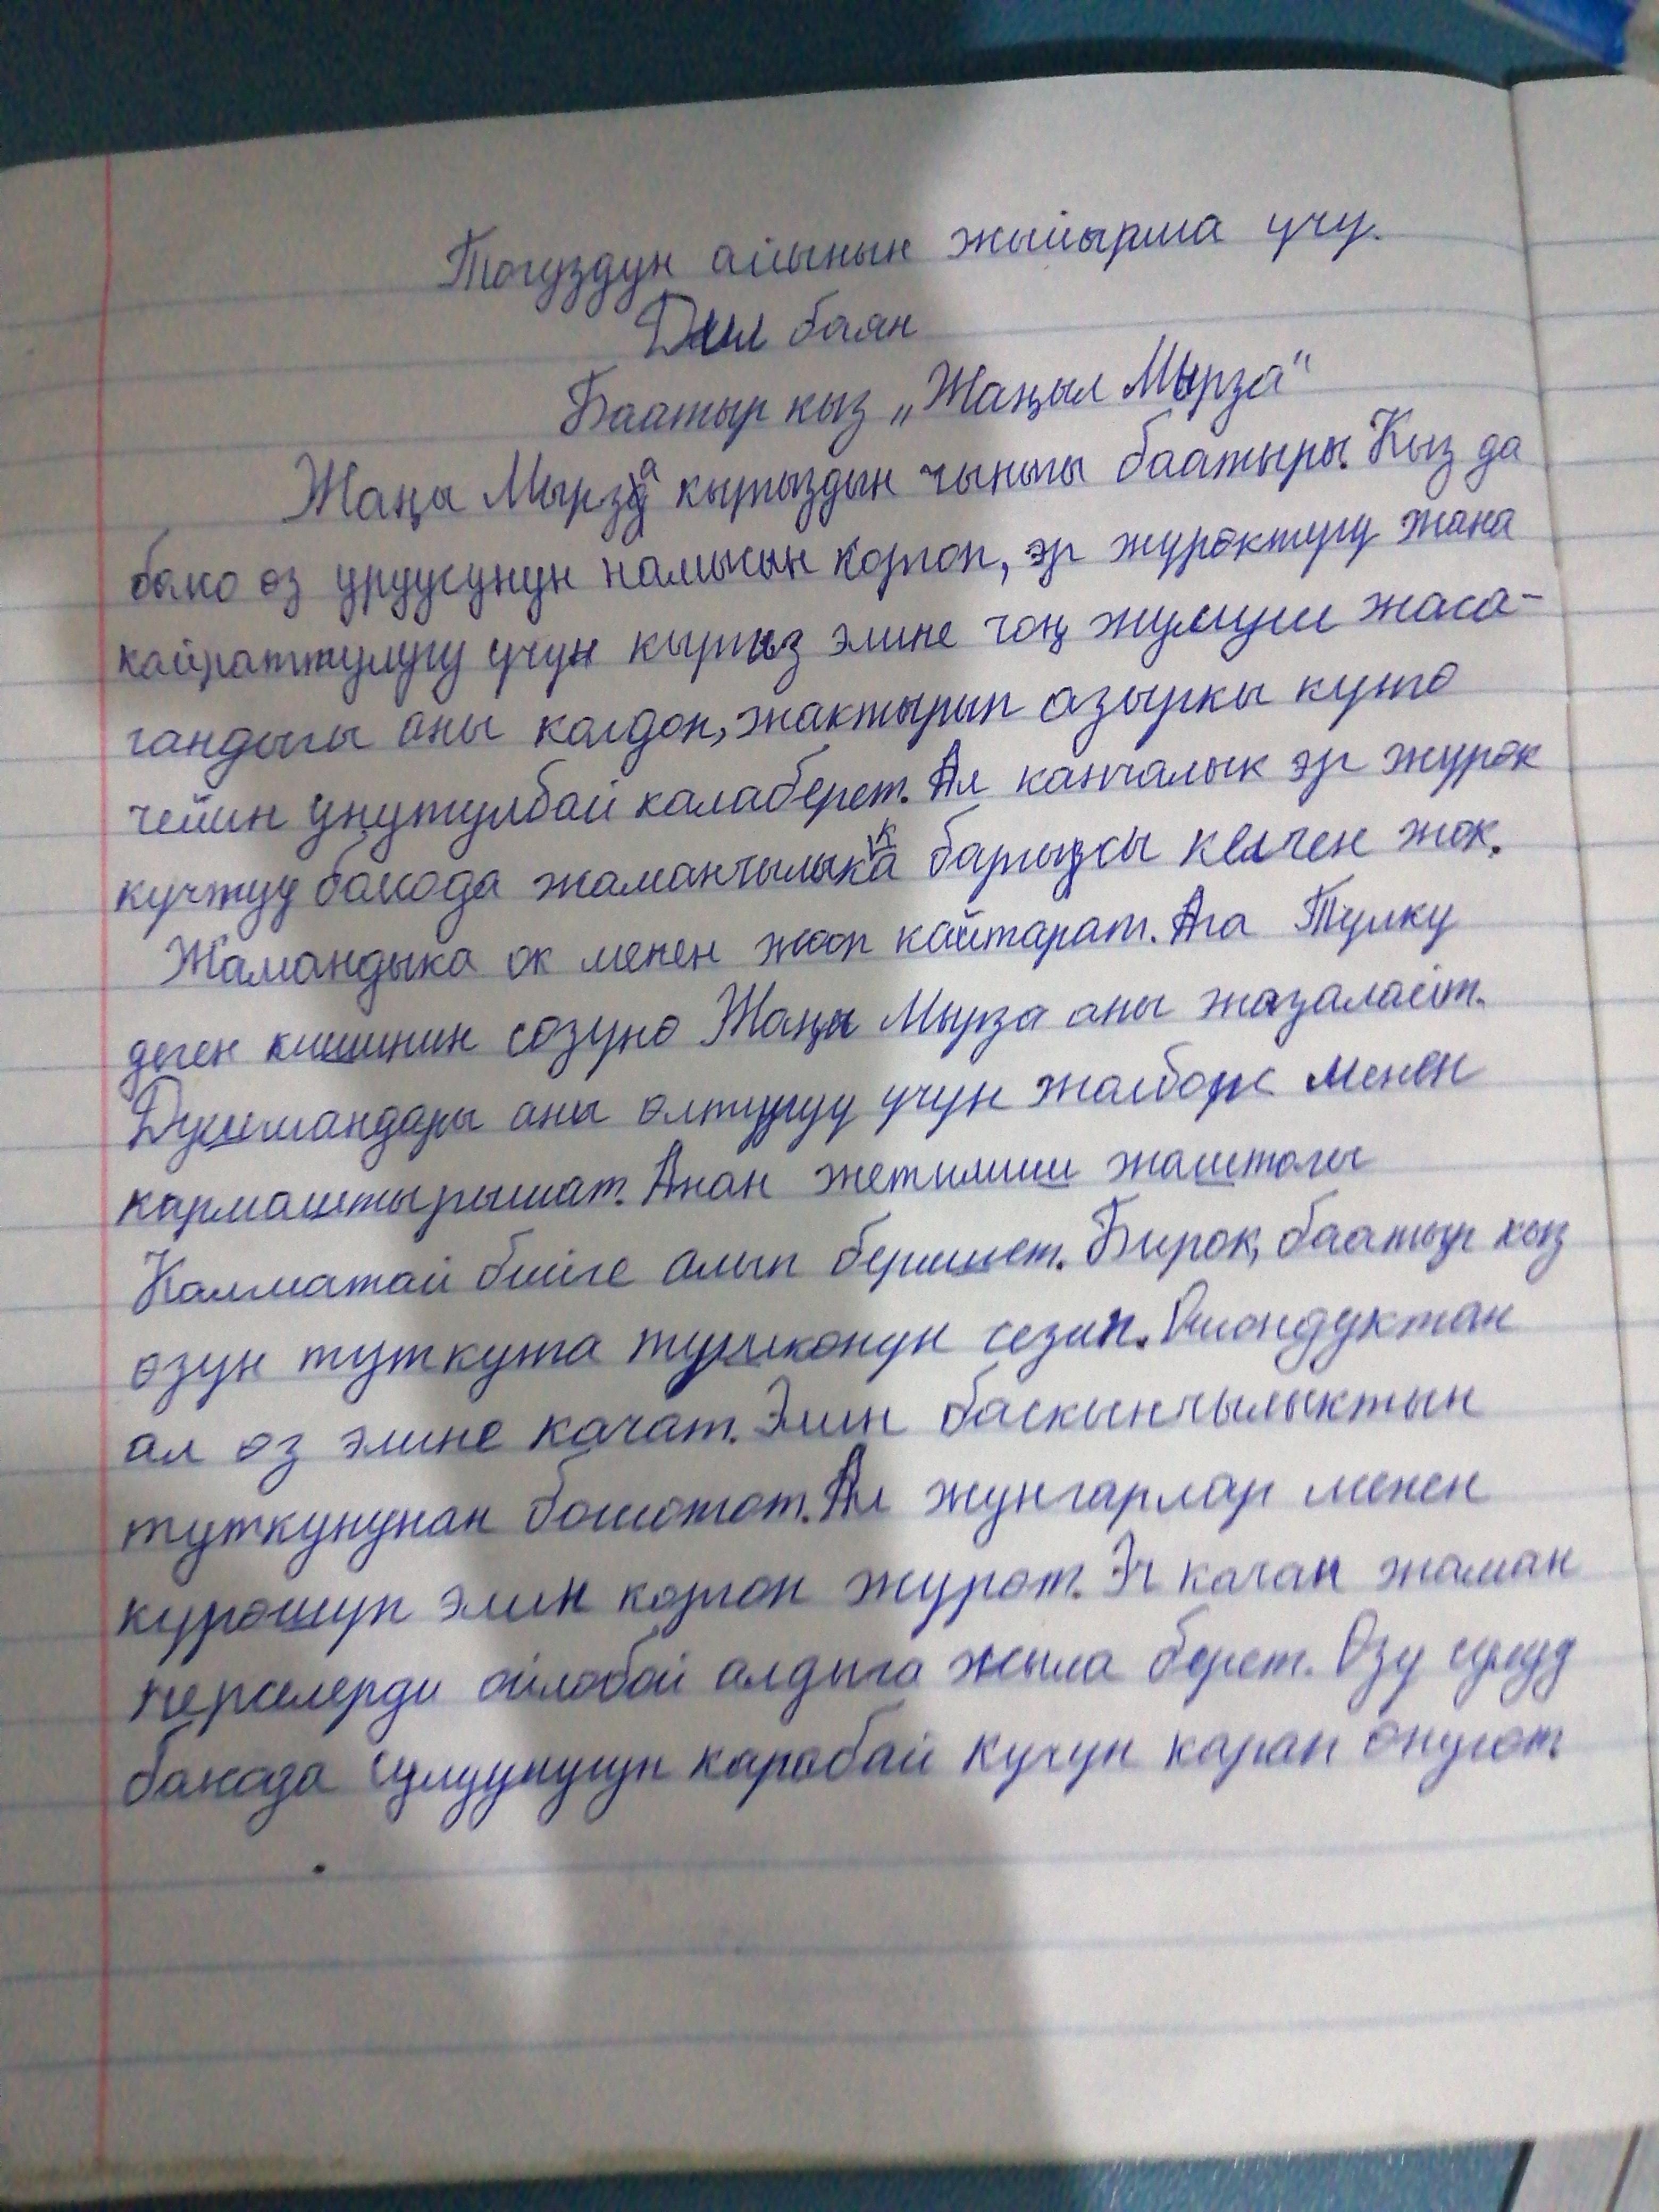 Тогуздун айынын жыйырма учу.
Дил баян
Баатыр кыз „Жаңыл Мырза"
Жаңы Мырза кыргыздын чыныгы баатыры. Кыз да
болсо өз уруусунун намысын коргоп, эр журөктугу жана
кайраттулугу учун кыргыз элине чоң жумуш жаса-
гандыгы аны колдоп, жактырып азыркы кунго
чейин унутулбай калаберет. Ал канчалык эр журөк
кучтуу болсода жаманчылыкка баргысы келген жок.
Жамандыка ок менен жооп кайтарат. Ага Тулку
деген кишинин созуно Жаңы Мырза аны жазалайт.
Душмандары аны өлтуруу учун жолборс менен
кармаштырышат. Анан жетимиш жаштагы
Калматай бийге алып беришет. Бирок, баатыр кыз
өзун туткунга тушконун сезип. Ошондуктан
ал өз элине качат. Элин баскынчылыктын
туткунунан бошотот. Ал жунгарлар менен
курошуп элин коргоп журөт. Эч качан жаман
нерселерди ойлобой алдыга жыла берет. Өзу сулуу
болсода сулуунугун карабай кучун карап өнугөт.